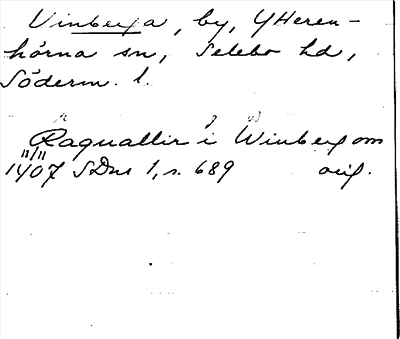 Vinberga, by, Ytteren-
hörna sn, Selebo hd,
Söderm. l.
Raguallir i Winberg om
11/11
1407 SDns 1, s. 689 orig.